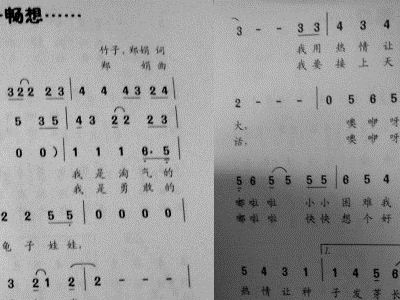 畅想……
竹子、郑娟 词
郑 娟 曲
3 2 2 2 3 | 4 4 4 3 2 4 |
5 3 5 | 4 3 2 2 2 3 |
0 0 ) | 1 1 1 6· 5 |
我 是 淘 气 的
我 是 勇 敢 的
2 2 5 5 | 0 0 0 0 |
龟 子 娃 娃,
3 2 1 2 | 2 - - - |
3 - - 3 3 | 4 3 4
我 用 热 情 让
我 要 接 上 天
2 - - - | 0 5 6 5
大。 噢 咿 呀
话。 噢 咿 呀
5 6 5 5 5 5 | 6 5 4
嘟 啦 啦 小 小 困 难 我
嘟 啦 啦 快 快 想 个 好
1.
5 4 3 1 | 1 4 5 6
热 情 让 种 子 发 芽 长